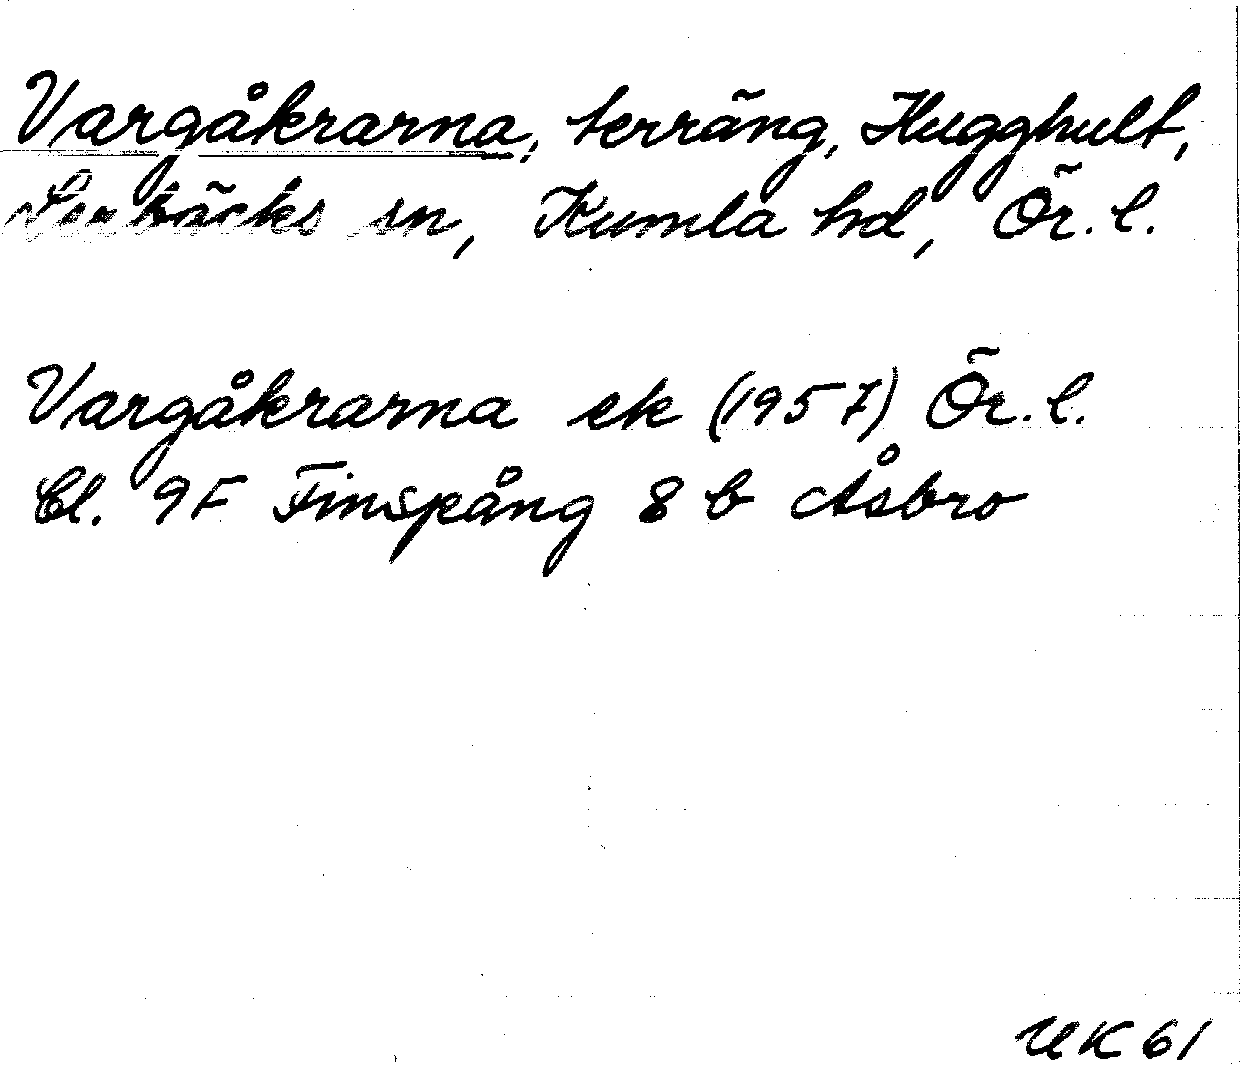 Vargåkrarna, terräng, Hugghult,
Lerbäcks sn, Kumla hd, Ör. l.
Vargåkrarna ek (1957) Ör. l.
Bl. 9F Finspång 8 b Åsbro
UK 61